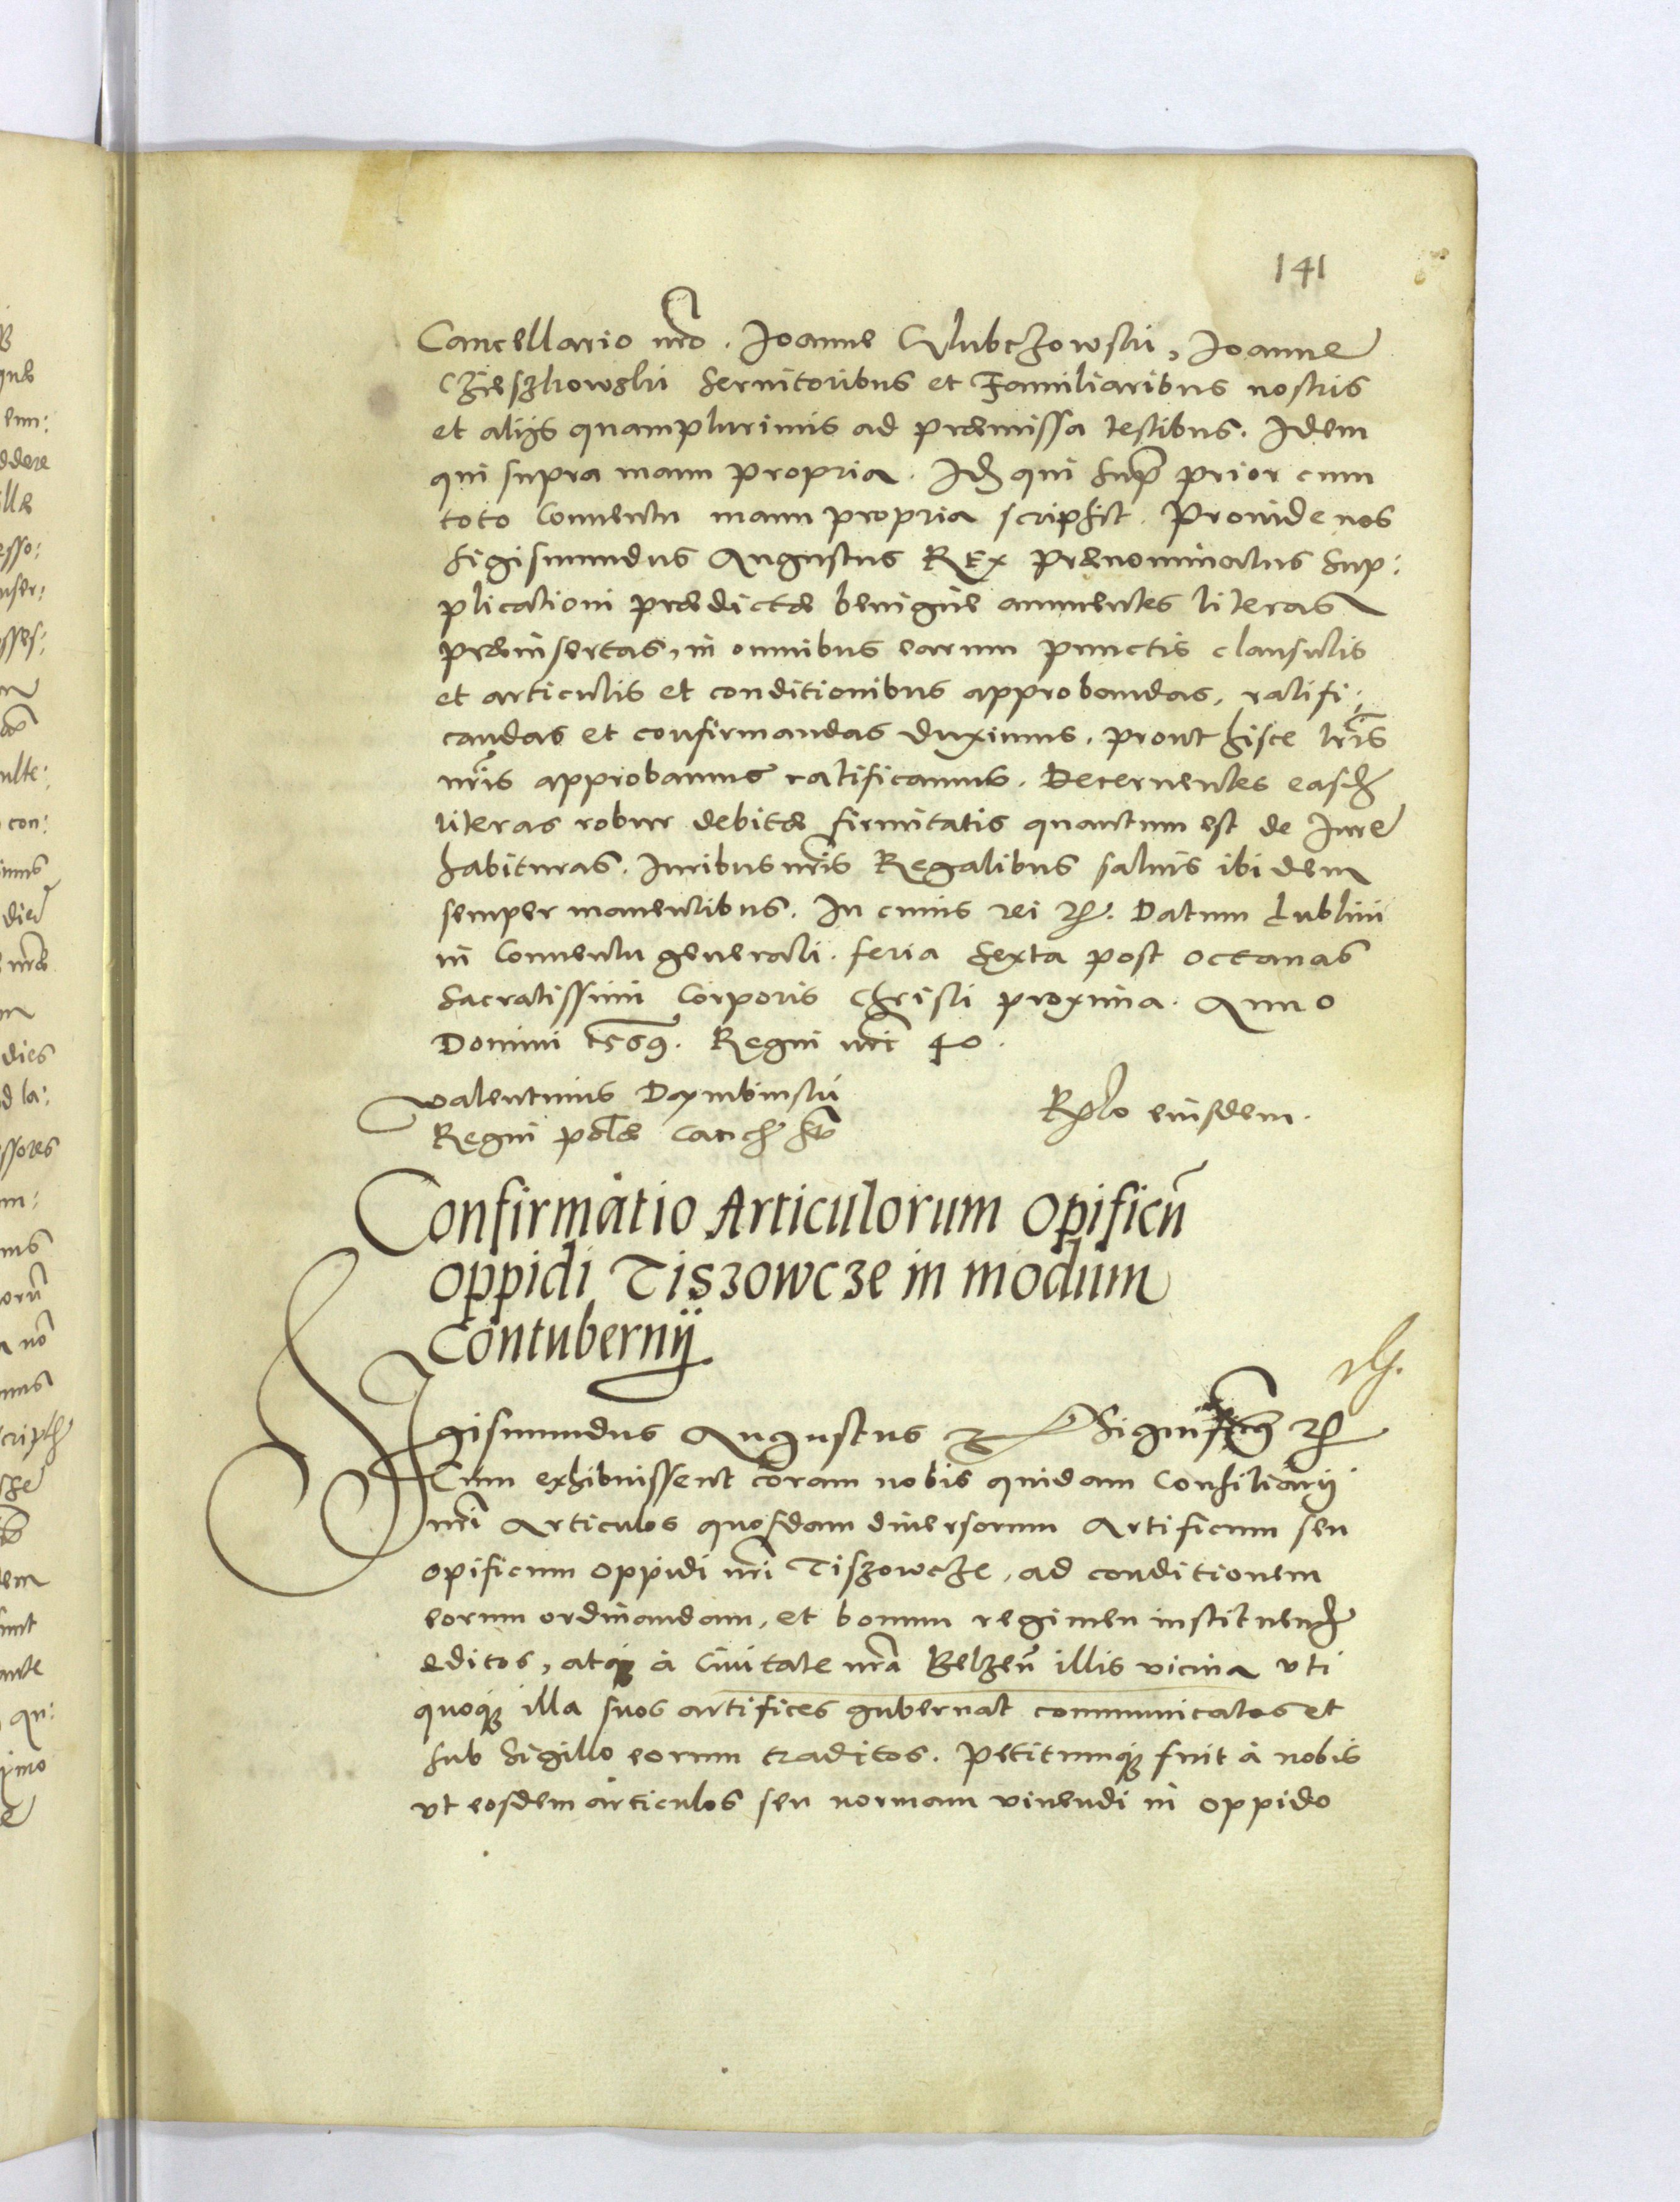 141
Cancellario nro. Joanne Clubczowski, Joanne
Czieszkowski Servitoribus et Familiaribus nostris
et alijs quamplurimis ad præmissa testibus. Idem
qui supra manu propria. Idem qui supra prior cum
toto Conventu manu propria scripsit. Proinde nos
Sigismundus Augustus REx prænominatus Sup:
plicationi prædictæ benigne annuentes literas
præinsertas, in omnibus earum punctis clausulis
et articulis et conditionibus approbandas, ratifi:
candas et confirmandas duximus, prout hisce lris
nris approbamus ratificamus. Decernentes easdem
literas robur debitæ firmitatis quantum est de Iure
habituras. Iuribus nris Regalibus salvis ibidem
semper manentibus. In cuius rei etc. Datum Lublini
in Conventu generali. feria Sexta post octavas
Sacratissimi Corporis Christi proxima. Anno
Domini 1569. Regni nri 40.
Valentinus Dąmbinski
Regni Polæ Cancel. sst
Relo eiusdem.
Confirmatio Articulorum Opificũ
Oppidi Tiszowcze in modum
Contubernij
Sigismundus Augustus etc. Significamus etc.
Cum exhibuissent coram nobis quidam Consiliarij
nri Articulos quosdam diversorum Artificum seu
opificum oppidi nri Tiszowcze, ad conditionem
eorum ordinandam, et bonum regimen instituendum
editos, atq; à Civitate nra Belzen̄ illis vicina uti
quoq; illa suos artifices gubernat communicatos et
sub Sigillo eorum traditos. Petitumq; fuit à nobis
ut eosdem articulos seu normam vivendi in oppido